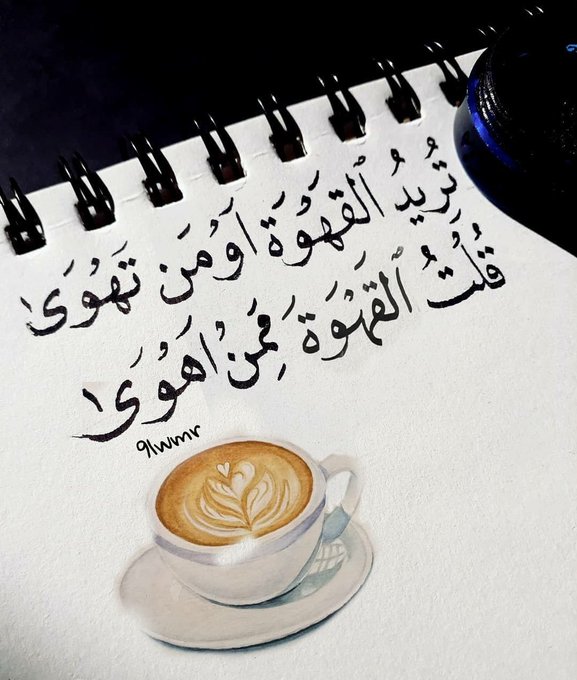 تُرِيدُ ٱلقَهْوَةَ اَوْ مَن تَهْوَىٰ
قُلْتُ ٱلْقَهْوَةَ مِمَنْ اَهْوَىٰ
91wmr